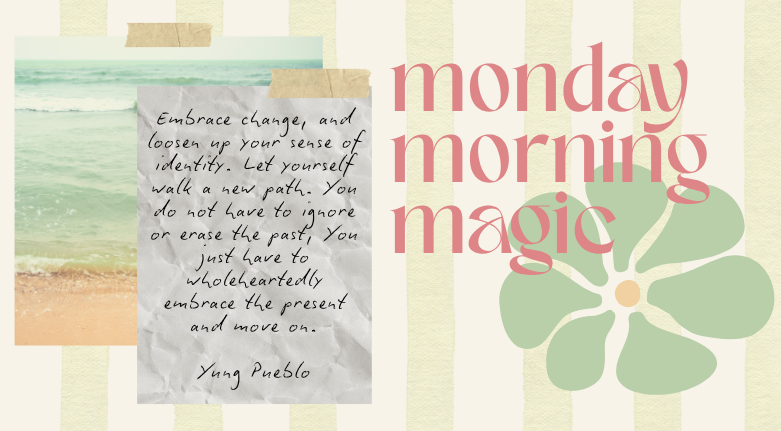 Embrace change, and
loosen up your sense of
identity. Let yourself
walk a new path. You
do not have to ignore
or erase the past, You
just have to
wholeheartedly
embrace the present
and move on.
Yung Pueblo
monday
morning
magic